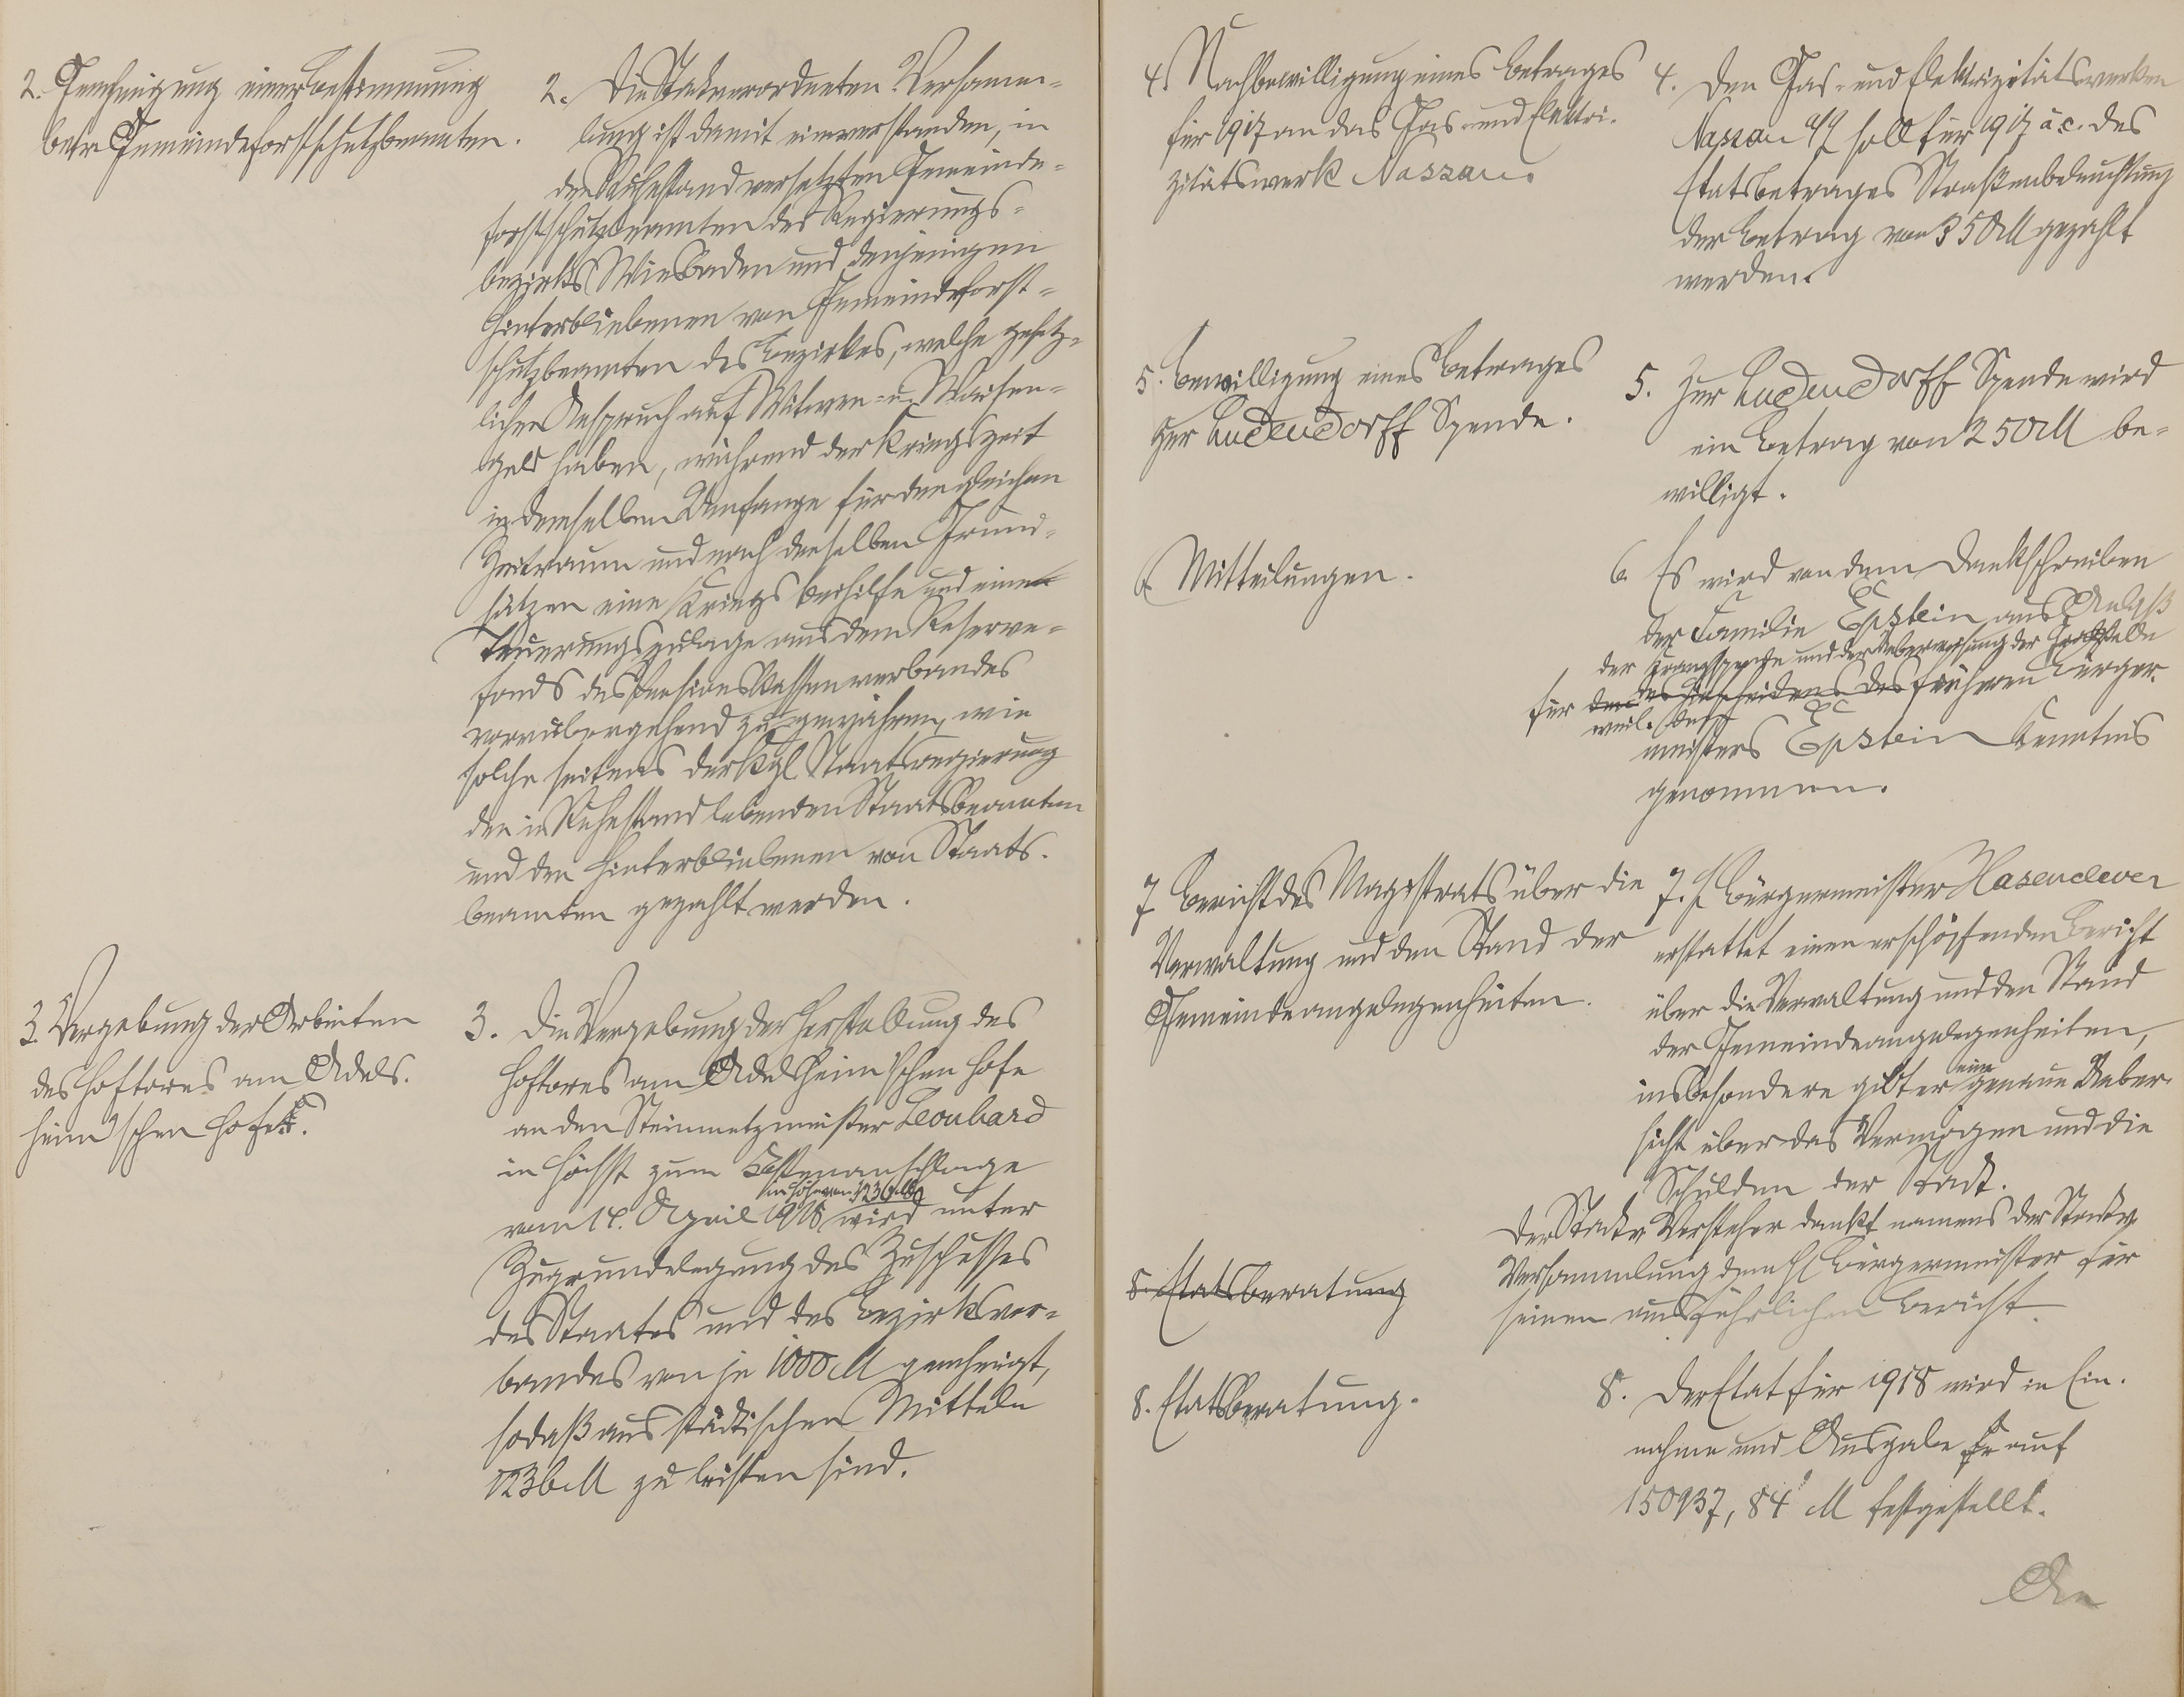 2. Genehmigung einer Bestimmung
betr. Gemeindeforstschutzbeamten.
2. Die Stadtverordneten Versamm-
lung ist damit einverstanden, in
den Ruhestand versetzten Gemeinde-
forstschutzbeamten des Regierungs-
bezirks Wiesbaden und denjenigen
Hinterbliebenen von Gemeindeforst-
schutzbeamten des Bezirkes, welche gesetz-
lichen Anspruch auf Witwen- u. Waisen-
geld haben, während der Kriegszeit
in demselben Umfange für den gleichen
Zeitraum und nach denselben Grund-
sätzen eine Kriegsbeihilfe und eine
Teuerungszulage aus dem Reserve-
fonds des Pensionskassenverbandes
vorübergehend zu gewähren, wie
solche seitens der Kgl. Staatsregierung
den in Ruhestand lebenden Staatsbeamten
und den Hinterbliebenen von Staats-
beamten gezahlt werden.
3. Vergebung der Arbeiten
des Hoftores am Adels-
heim'schen Hofe.
3. Die Vergebung der Herstellung des
Hoftores am Adelsheim'schen Hofe
an den Steinmetzmeister Leonhard
in Höchst zum Kostenanschlage
in Höhe von
vom 14. April 1918 wird unter
Zugrundelegung des Zuschusses
des Staates und des Bezirksver-
bandes von je 1000 M genehmigt,
sodaß aus städtischen Mitteln
1236 M zu leisten sind.
4. Nachbewilligung eines Betrages
für 1917 an das Gas- und Elektri-
zitätswerk Nassau.
4. Den Gas- und Elektrizitätswerken
Nassau a/L soll für 1917 a.c. des
Etatsbetrages Straßenbeleuchtung
der Betrag von 350 M gezahlt
werden.
5. Bewilligung eines Betrages
zur Ludendorff Spende.
5. Zur Ludendorff Spende wird
ein Betrag von 250 M be-
willigt.
6. Mitteilungen.
6. Es wird von dem Dankschreiben
der Familie Epstein aus Anlaß
der Kranzspende und der Ueberweisung der Grabstelle
für den des Hinscheidens des früheren Bürger-
weil.
meisters Epstein Kenntnis
genommen.
7. Bericht des Magistrats über die
Verwaltung und den Stand der
Gemeindeangelegenheiten.
7. H. Bürgermeister Hasenclever
erstattet einen erschöpfenden Bericht
über die Verwaltung und den Stand
der Gemeindeangelegenheiten,
insbesondere gibt er eine genaue Ueber-
sicht über das Vermögen und die
Schulden der Stadt.
Der Stadtv. Vorsteher dankt namens der Stadtv.
Versammlung dem H. Bürgermeister für
seinen ausführlichen Bericht.
8. Etatsberatung
8. Etatsberatung.
8. Der Etat für 1918 wird in Ein-
nahme und Ausgabe auf
150937,84 M festgestellt.
An